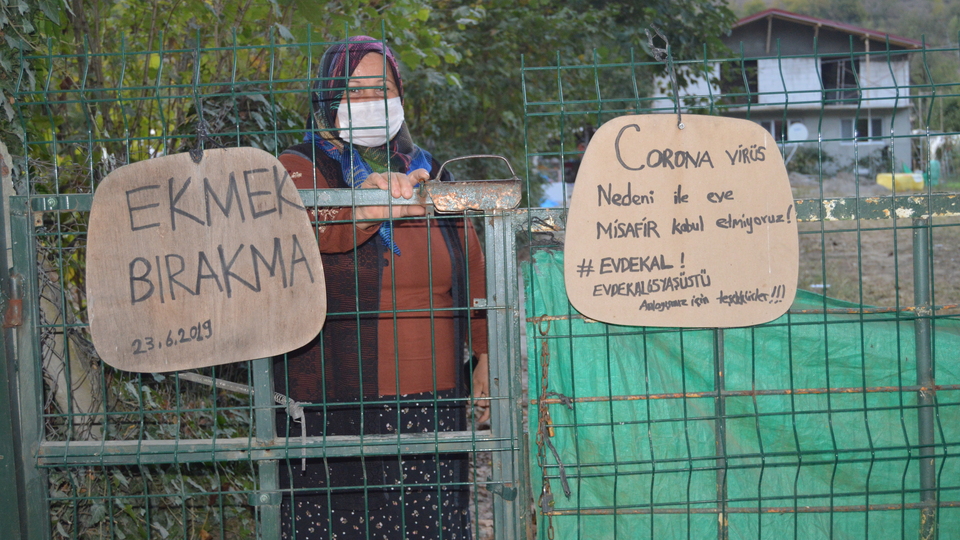 EKMEK
BIRAKMA
23.6.2019
CORONA VİRÜS
Nedeni ile eve
MİSAFİR kabul etmiyoruz!
#EVDEKAL!
EVDEKAL65YAŞÜSTÜ
Anlayışınız için teşekkürler!!!